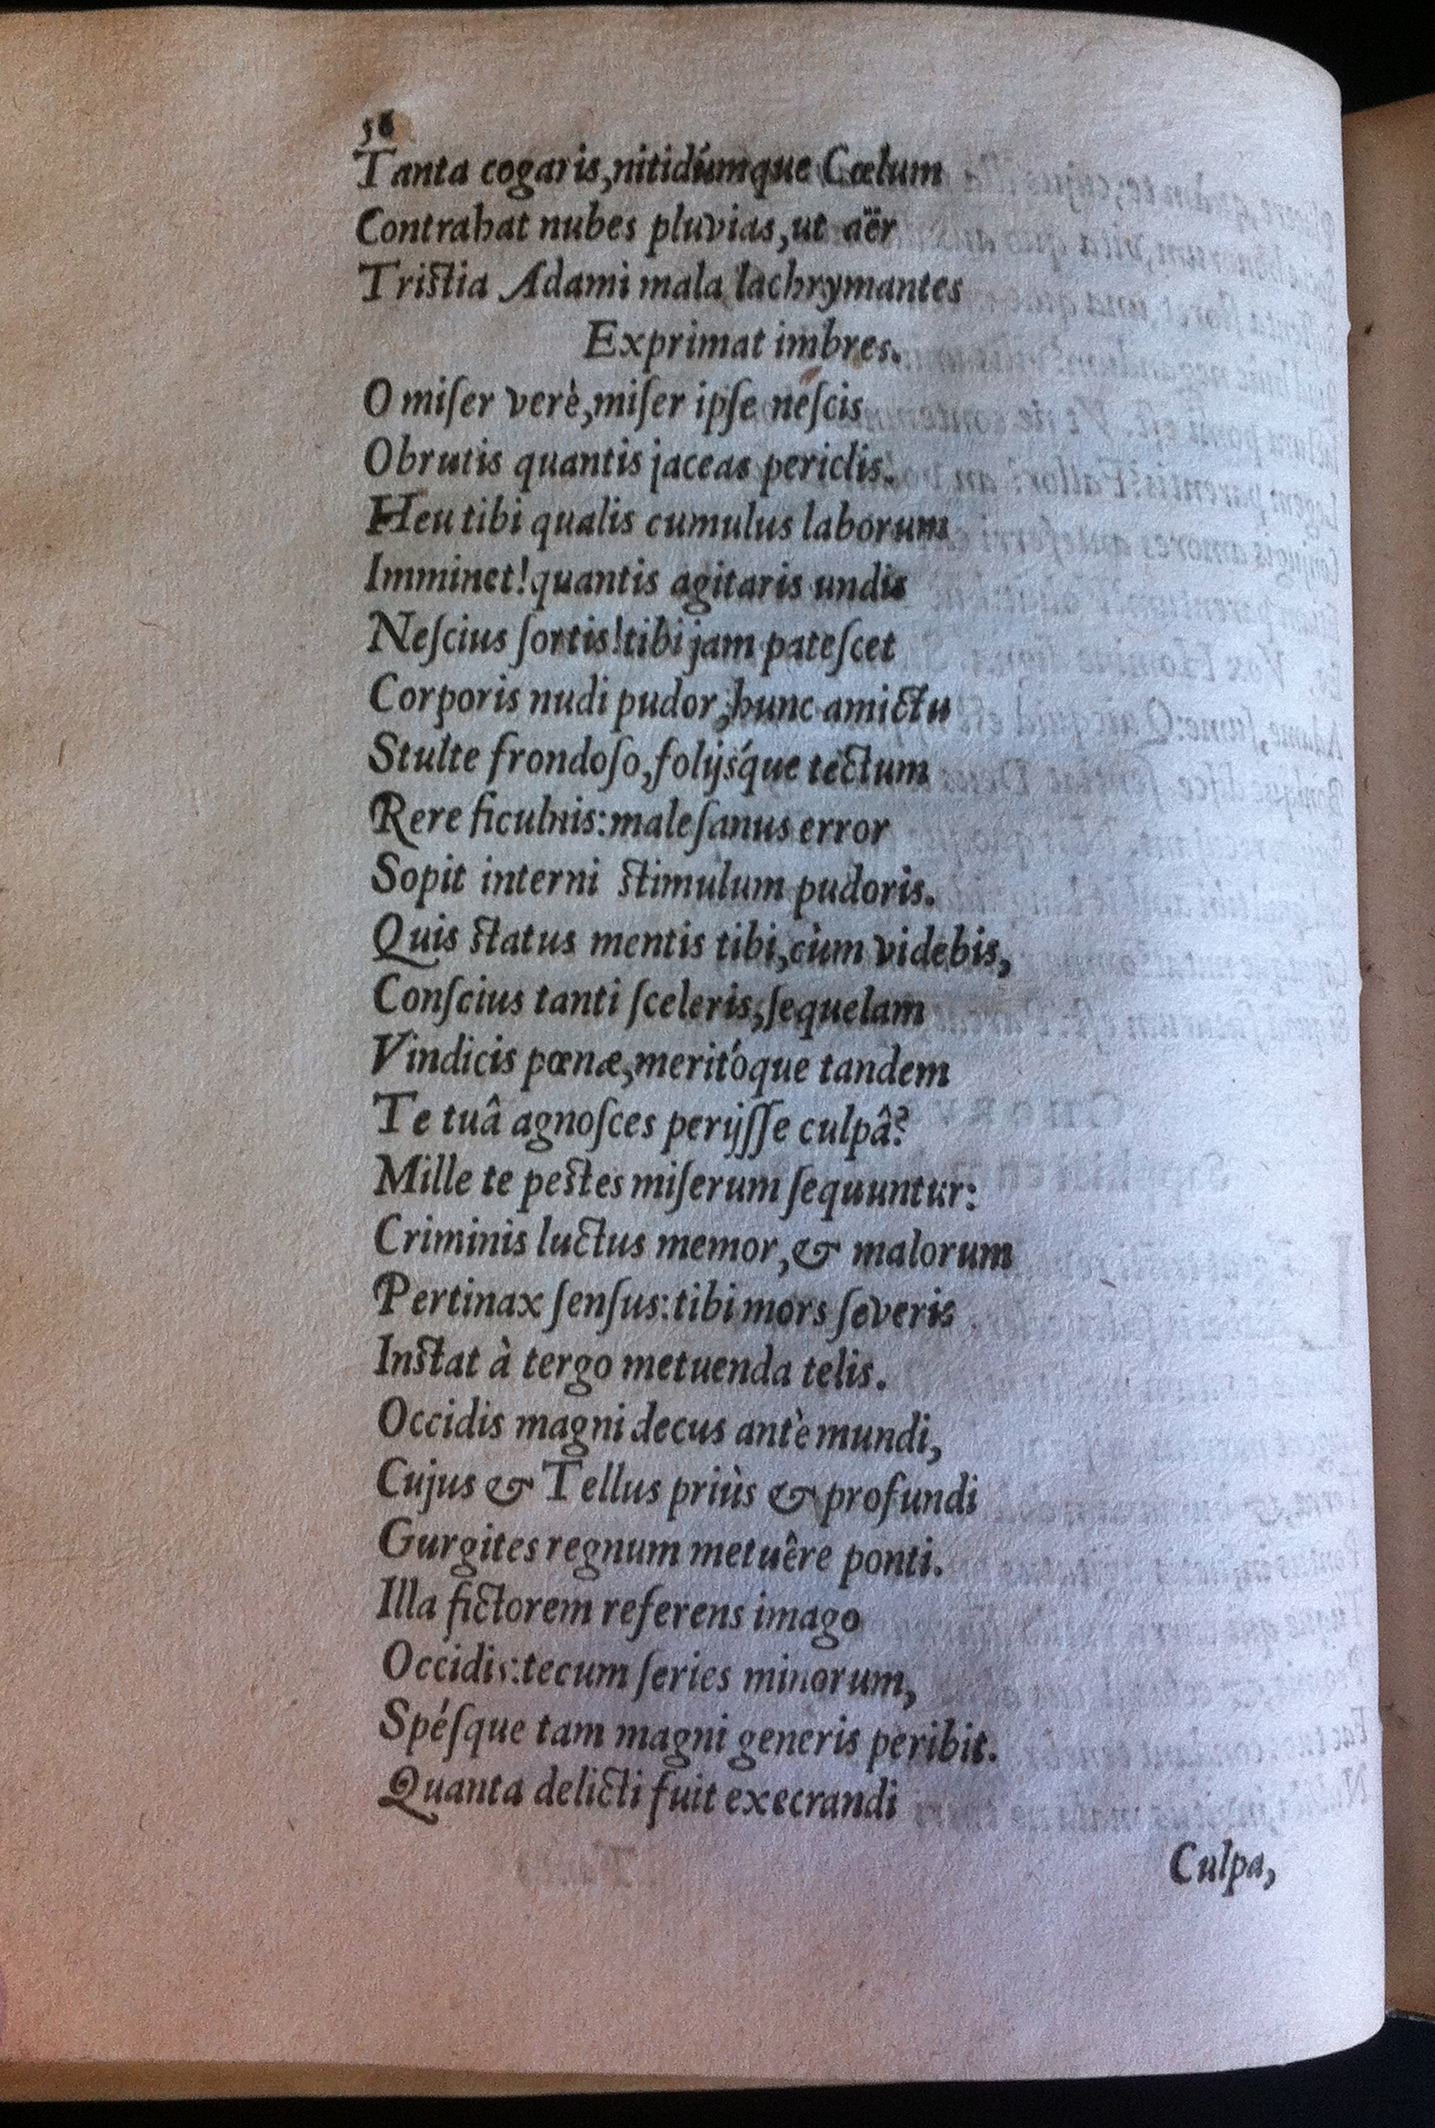 56
Tanta cogaris, nitidúmque Cœlum
Contrahat nubes pluvias, ut aër
Tristia Adami mala lachrymantes
Exprimat imbres.
O miſer verè, miſer ipſe neſcis
Obrutis quantis jaceas periclis.
Heu tibi qualis cumulus laborum
Imminet! quantis agitaris undis
Neſcius ſortis! tibi jam pateſcet
Corporis nudi pudor; hunc amictu
Stulte frondoſo, folijsq́ue tectum
Rere ficulnis: maleſanus error
Sopit interni stimulum pudoris.
Quis status mentis tibi, cùm videbis,
Conſcius tanti ſceleris, ſequelam
Vindicis pœnæ, meritóque tandem
Te tuâ agnoſces perijſſe culpâ?
Mille te pestes miſerum ſequuntur:
Criminis luctus memor, & malorum
Pertinax ſenſus: tibi mors ſeveris
Instat à tergo metuenda telis.
Occidis magni decus antè mundi,
Cujus & Tellus priùs & profundi
Gurgites regnum metuêre ponti.
Illa fictorem referens imago
Occidis: tecum ſeries minorum,
Spéſque tam magni generis peribit.
Quanta delicti fuit execrandi
Culpa,